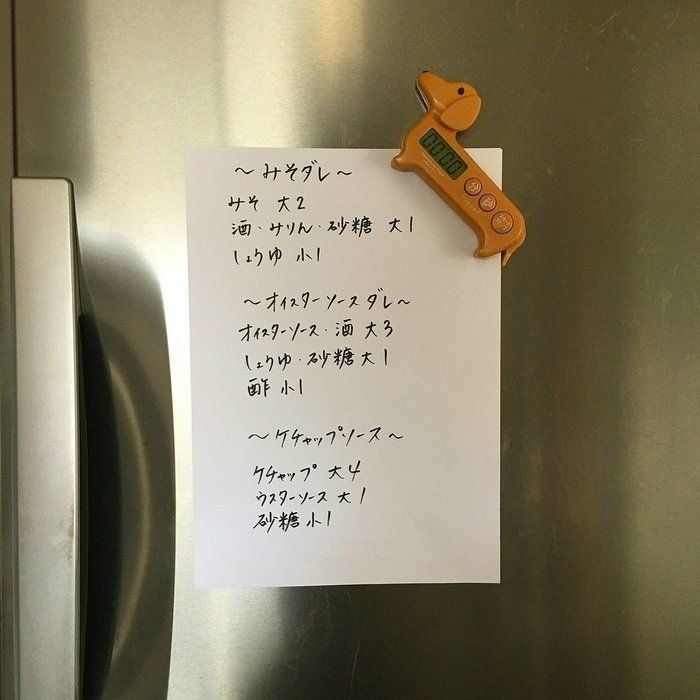 ～みそダレ～
みそ 大2
酒・みりん・砂糖 大1
しょうゆ 小1
～オイスターソースダレ～
オイスターソース・酒 大3
しょうゆ・砂糖 大1
酢 小1
～ケチャップソース～
ケチャップ 大4
ウスターソース 大1
砂糖 小1
00:00
分 秒